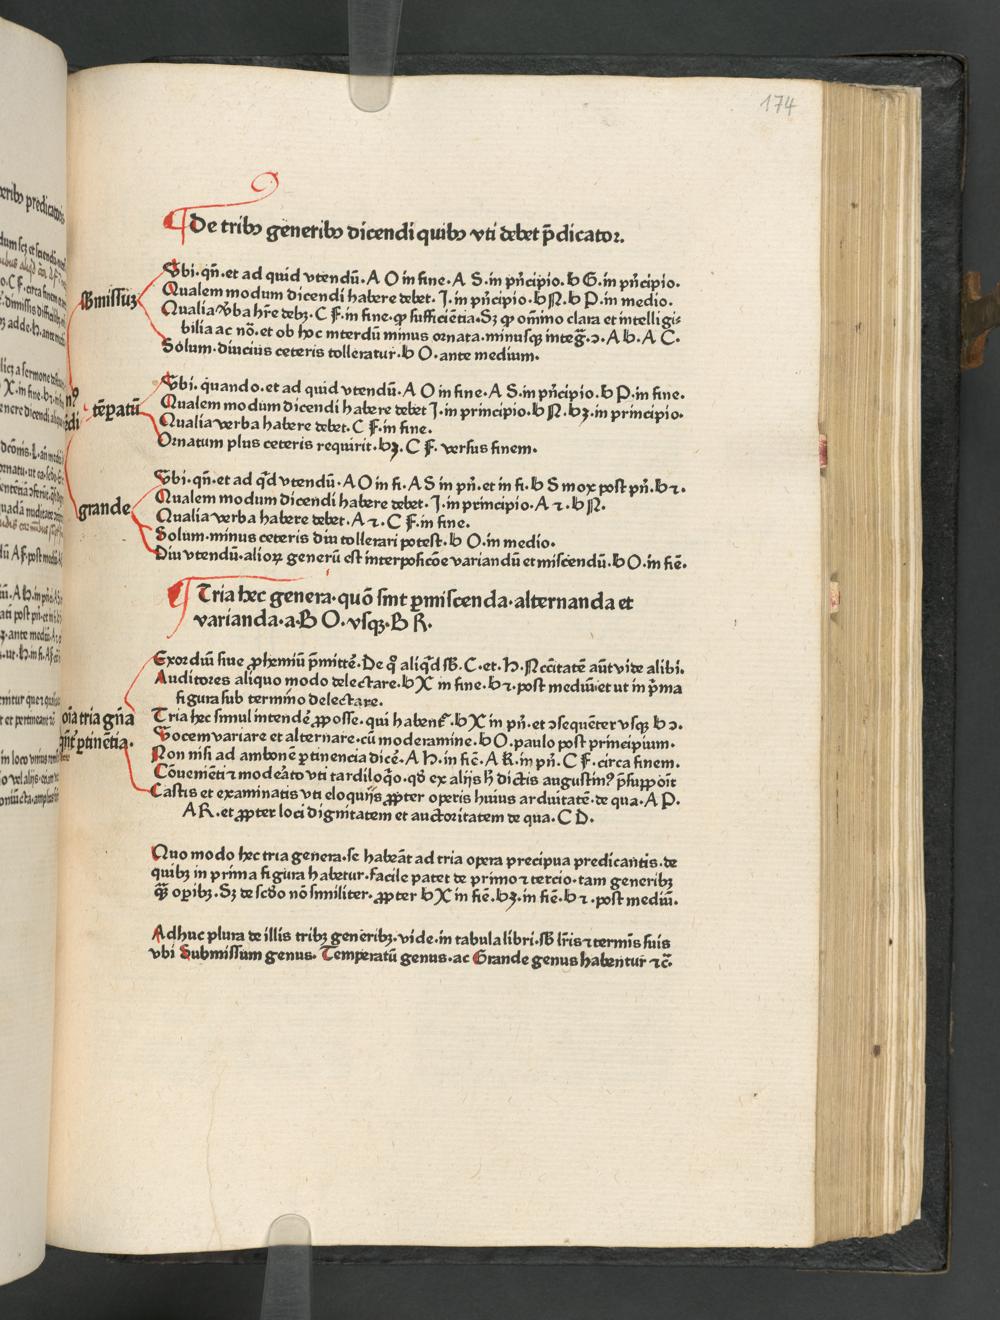 174
De tribꝫ generibꝫ dicendi quibꝫ vti debet p̄dicator.
sb̄missuꝫ
Ubi·qn̄·et ad quid vtendū·A O in fine·A S·in pn̄cipio·b G·in pn̄cipio.
Qualem modum dicendi habere debet·I·in pn̄cipio·b N·b P·in medio.
Qualia v̄ba hr̄e debꝫ·C F·in fine·ꝙ sufficiētia·Sꝫ ꝙ om̄ino clara et intelligi⸗
bilia ac nō·et ob hoc interdū minus ornata·minusqꝫ inteḡ·ɔ·A b·A C.
Solum·diucius ceteris tolleratur·b O·ante medium.
tēꝑatū
Ubi·quando·et ad quid vtendū·A O in fine·A S·in pn̄cipio·b P·in fine.
Qualem modum dicendi habere debet I·in principio·b N·bꝫ·in principio.
Qualia verba habere debet·C F·in fine.
Ornatum plus ceteris requirit·bꝫ·C F·versus finem.
grande
Ubi·qn̄·et ad qd̄ vtendū·A O in fi·A S in pn̄·et in fi·b S mox post pn̄·b ⁊.
Qualem modum dicendi habere debet·I·in principio·A ⁊·b N.
Qualia verba habere debet·A ⁊·C F·in fine.
Solum·minus ceteris diu tollerari potest·b O·in medio.
Diu vtendū·alioꝝ generū est interposicōe variandū et miscendū·b O·in fiē.
Tria hec genera·quō sint ꝑmiscenda·alternanda et
varianda·a·B O·vsqꝫ·B R.
oīa tria gn̄a
qn̄t ꝑtinētia.
Exordiū siue ꝓhemiū p̄mittē·De qͦ aliqd̄ sb̄·C·et·h·Nccītatē aūt vide alibi.
Auditores aliquo modo delectare·b X in fine·b ⁊·post mediū·et ut in pͥma
figura sub termino delectare.
Tria hec simul intendē ꝓ posse·qui habent᷑·b X in pn̄·et ɔsequēter vsqꝫ b ɔ.
Uocem variare et alternare·cū moderamine·b O·paulo post principium.
Non nisi ad ambonē ꝑtinencia dicē·A h·in fiē·A R·in pn̄·C F·circa finem.
Cōueniēti ⁊ modeāto vti tardiloqͦo·qd̄ ex alijs h̄ dictis augustinꝰ p̄suppōit
Castis et examinatis vti eloquijs ꝓpter operis huius arduitatē·de qua·A P.
A R·et ꝓpter loci dignitatem et auctoritatem de qua·C D.
Quo modo hec tria genera·se habeāt ad tria opera precipua predicantis·de
quibꝫ in prima figura habetur·facile patet de primo ⁊ tercio·tam generibꝫ
qͣꝫ oꝑibꝫ·Sꝫ de scd̄o nō similiter·ꝓpter b X in fiē·bꝫ·in fiē·b ⁊·post mediū.
Adhuc plura de illis tribꝫ generibꝫ·vide·in tabula libri·sb̄ lr̄is ⁊ termīs suis
vbi Submissum genus·Temperatū genus·ac Grande genus habentur ⁊c̄.